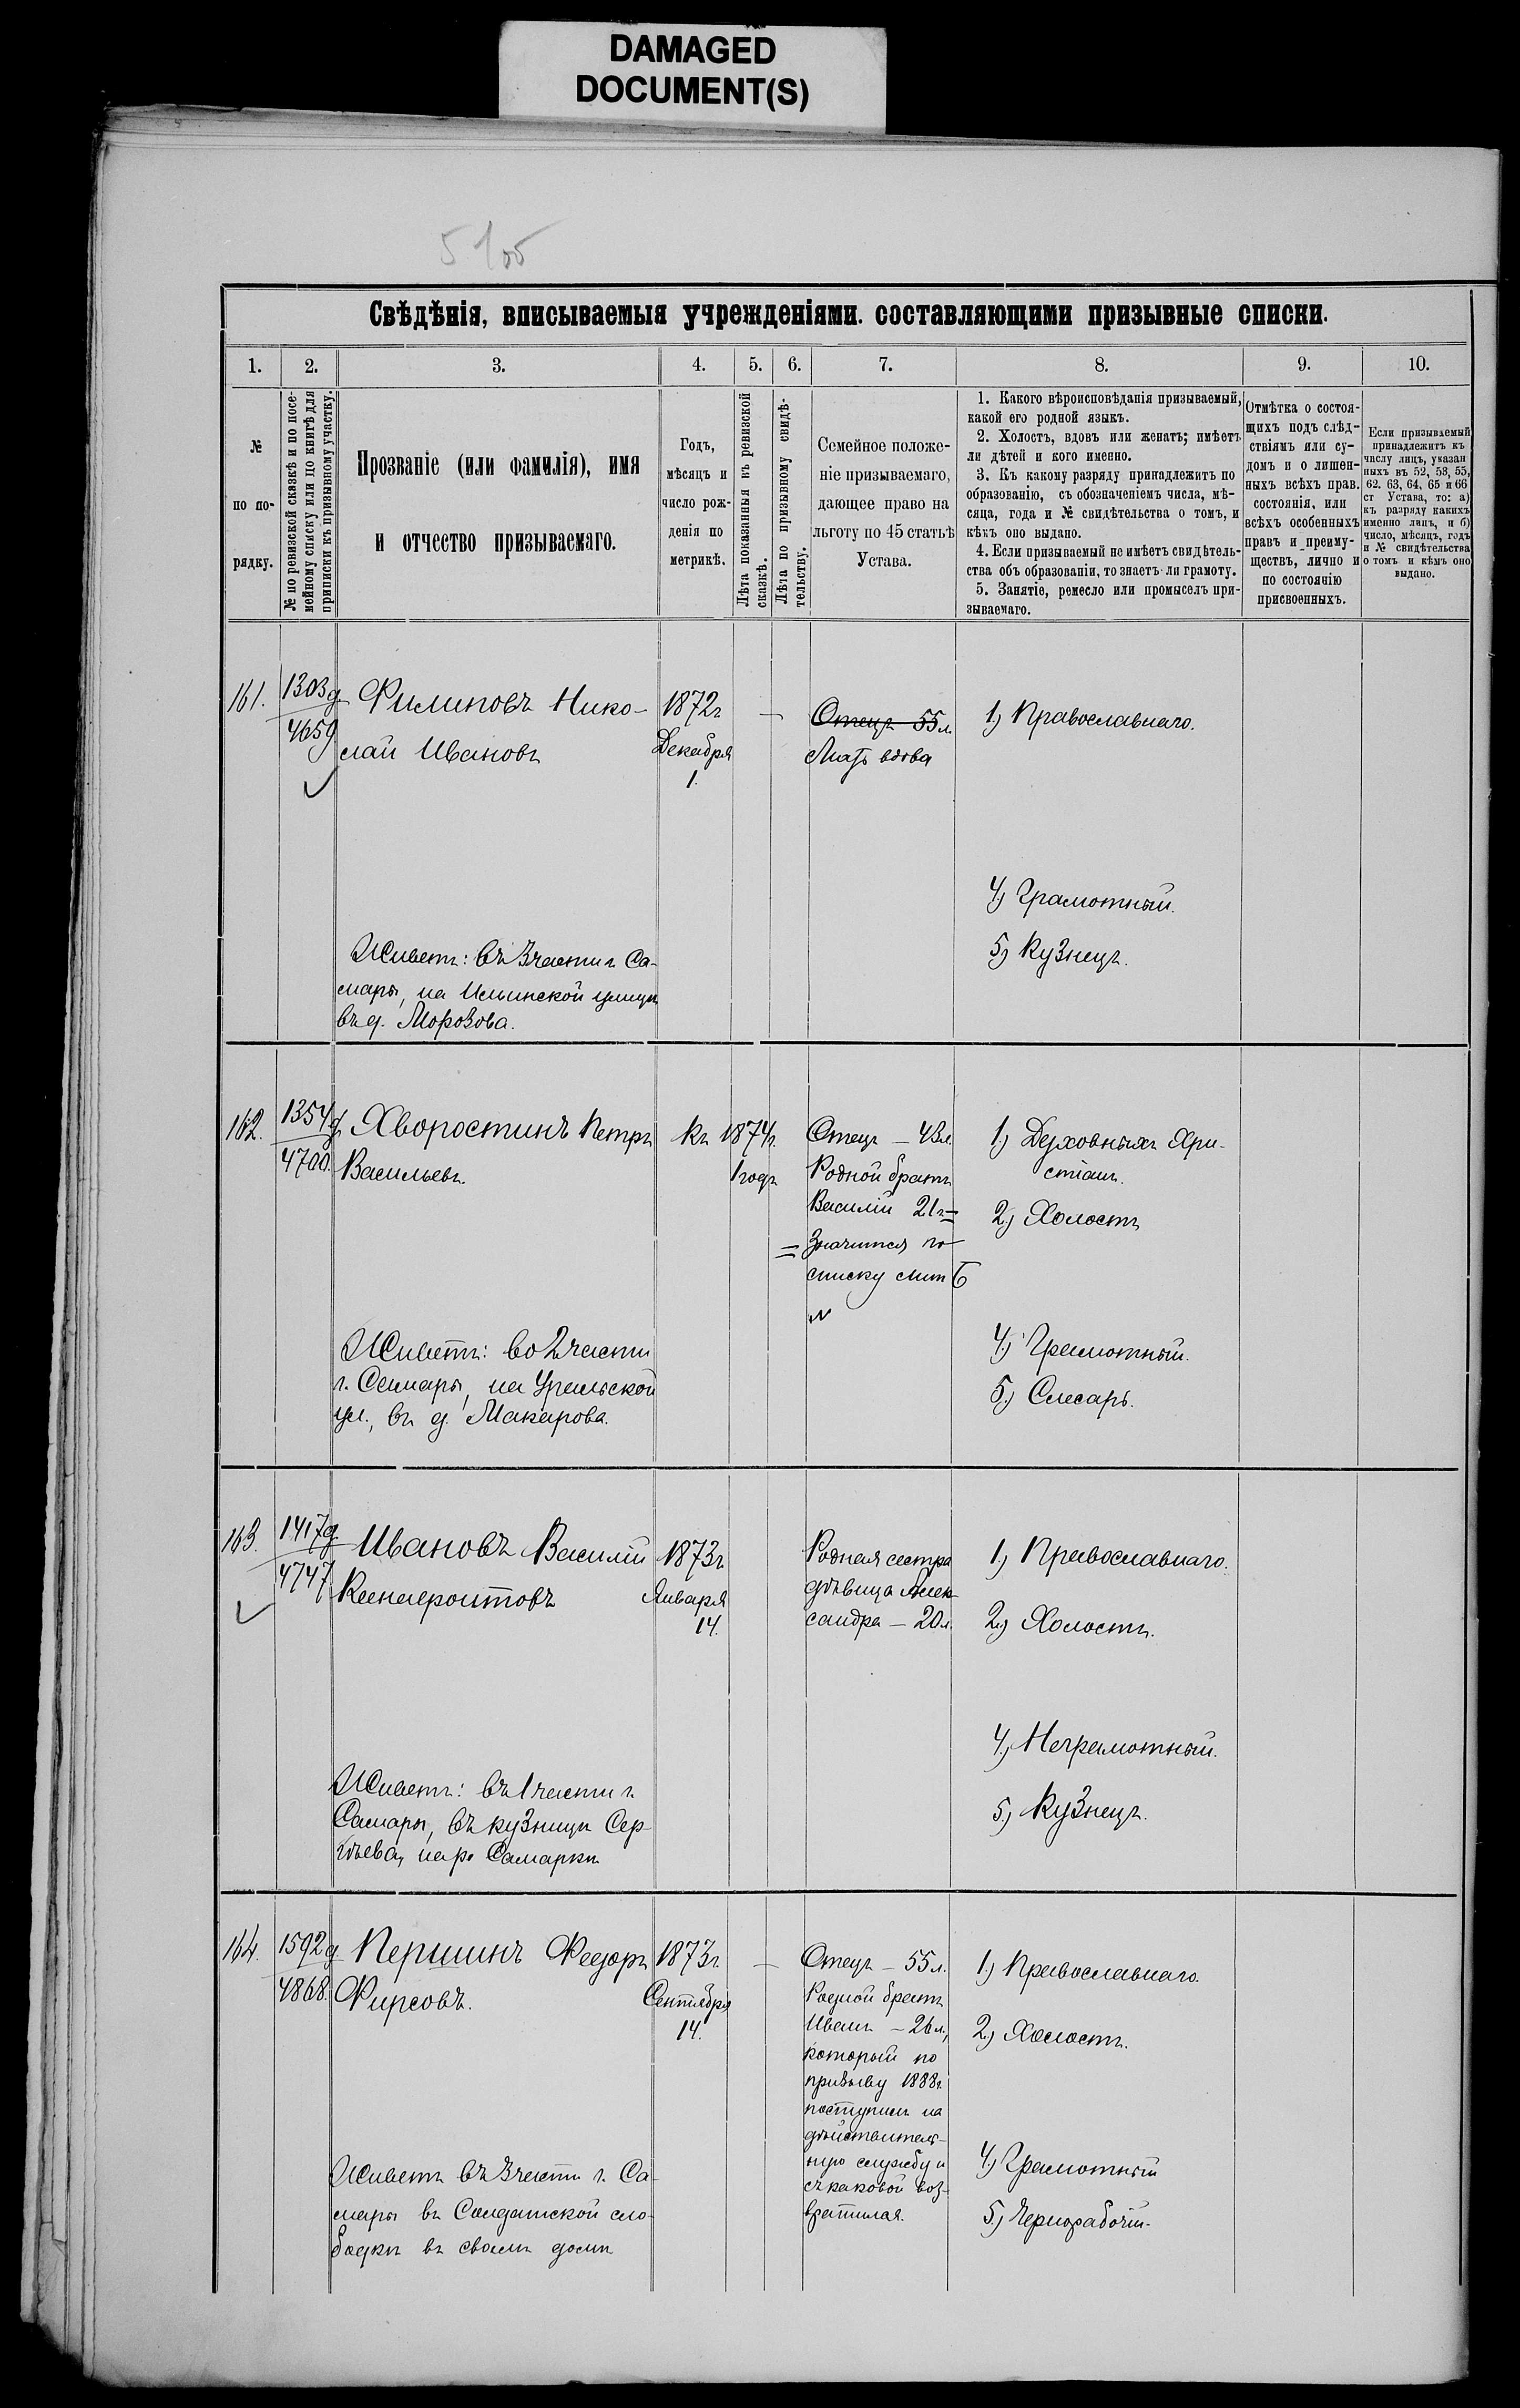 DAMAGED
DOCUMENT(S)
Свѣдѣнія, вписываемыя учрежденіями. составляющими призывные списки.
1. 2. 3. 4. 5. 6. 7. 8. 9. 10.
№
по по-
рядку.
№ по ревизской сказкѣ и по посе-
мейному списку или по книгѣ для
приписки къ призывному участку.
Прозваніе (или фамилія), имя
и отчество призываемаго.
Годъ,
мѣсяцъ и
число рож-
денія по
метрикѣ.
Лѣта показанныя въ ревизской
сказкѣ.
Лѣта по призывному свидѣ-
тельству.
Семейное положе-
ніе призываемаго,
дающее право на
льготу по 45 статьѣ
Устава.
1. Какого вѣроисповѣданія призываемый,
какой его родной языкъ.
2. Холостъ, вдовъ или женатъ; имѣетъ
ли дѣтей и кого именно.
3. Къ какому разряду принадлежитъ по
образованію, съ обозначеніемъ числа, мѣ-
сяца, года и № свидѣтельства о томъ, и
кѣмъ оно выдано.
4. Если призываемый не имѣетъ свидѣтель-
ства объ образованіи, то знаетъ-ли грамоту.
5. Занятіе, ремесло или промыселъ при-
зываемаго.
Отмѣтка о состоя-
щихъ подъ слѣд-
ствіямъ или су-
домъ и о лишен-
ныхъ всѣхъ прав.
состоянія, или
всѣхъ особенныхъ
правъ и преиму-
ществъ, лично и
по состоянію
присвоенныхъ.
Если призываемый
принадлежитъ къ
числу лицъ, указан
ныхъ въ 52, 53, 55,
62. 63, 64, 65 и 66
ст Устава, то: а)
къ разряду какихъ
именно лицъ, и б)
число, мѣсяцъ, годъ
и № свидѣтельства
о томъ и кѣмъ оно
выдано.
161.
1303д
4659
Филиповъ Нико-
лай Ивановъ
Живетъ: въ 3 части г. Са-
мары, на Ильинской улицѣ
въ д. Морозова.
1872г
Декабря
1.
Отецъ 55 л.
Мать вдова
1) Православнаго.
4) Грамотный.
5) Кузнецъ.
162.
1354д
4700.
Хворостинъ Петръ
Васильевъ.
Живетъ: во 2 части
г. Самары, на Уральской
ул., въ д. Макарова.
Къ 1874г.
1 годъ
Отецъ – 43 л.
Родной братъ
Василій 21 г =
= Значится по
списку лит Б
1.) Духовныхъ Хри-
стіанъ.
2.) Холостъ
4.) Грамотный.
5.) Слесарь.
163.
1417д
4747
Ивановъ Василій
Ксенофонтовъ
Живетъ: въ 1 части г.
Самары, въ кузницѣ Сер-
гѣева, на р. Самаркѣ
1873г.
Января
14.
Родная сестра
дѣвица Алек-
сандра – 20 л.
1.) Православнаго.
2.) Холостъ.
4.) Неграмотный.
5.) Кузнецъ.
164.
1592д
4868.
Першинъ Федоръ
Фирсовъ.
Живетъ въ 3 части г. Са-
мары въ Солдатской сло-
бодкѣ въ своемъ домѣ
1873г.
Сентября
14.
Отецъ – 55 л.
Родной братъ
Иванъ – 26 л.,
который по
призыву 1888г.
поступилъ на
дѣйствитель-
ную службу и
съ каковой воз-
вратился.
1.) Православнаго.
2.) Холостъ.
4.) Грамотный
5.) Чернорабочій.